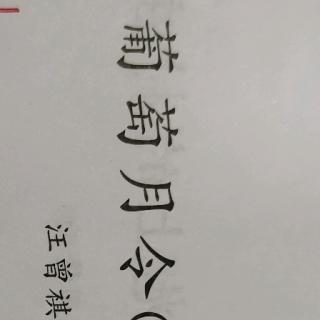 葡萄月令（
汪曾祺